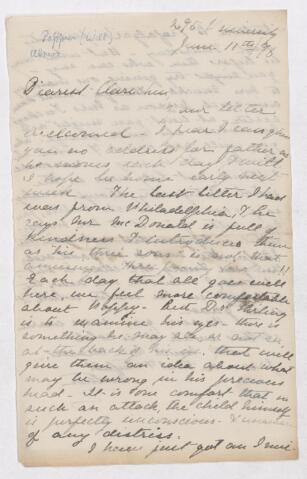 Dearest Clara
your letter
welcomed - I fear I can give
you no address for father as
he moves each day & will
I hope be home early next
week. The last letter I had
was from Philadelphia, & he
says Mr McDonald is full of
kindness & introduces them
as his three sons
Each day that all goes well
here, we feel more comfortable
about Poppy - But Dr Stirling
is to examine his eyes - there is
something he may see or not see
at the back of the eye, that will
give them an idea about what
may be wrong in his precious
head - It is some comfort that in
such an attack, the child himself
is perfectly unconscious
of any distress.
I have just got an invi